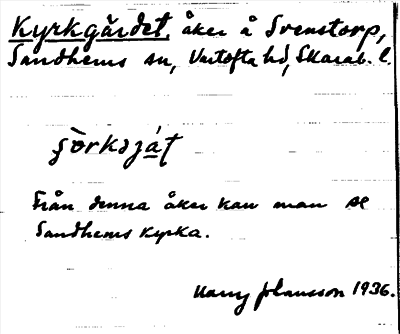 Kyrkgärdet, åker å Svenstorp,
Sandhems sn, Vartofta hd, Skarab. l.
Från denna åker kan man se
Sandhems kyrka.
Harry Johansson 1936.